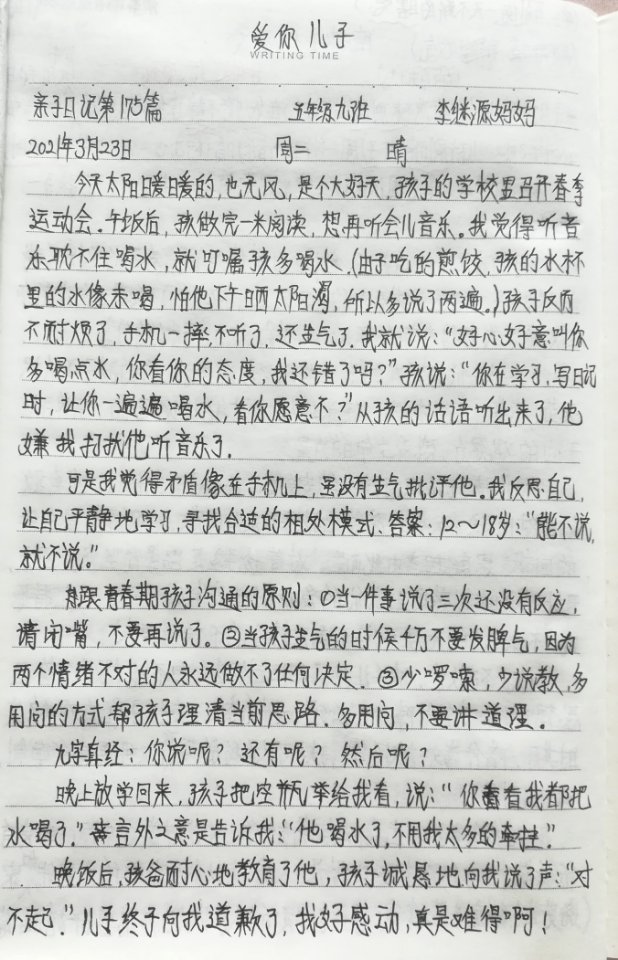 爱你儿子
WRITING TIME
亲子日记第175篇 五年级九班 李继源妈妈
2021年3月23日 周二 晴
今天太阳暖暖的,也无风,是个大好天,孩子的学校里召开春季
运动会。午饭后,孩做完一米阅读,想再听会儿音乐。我觉得听音
乐耽不住喝水,就叮嘱孩多喝水.(由于吃的煎饺,孩的水杯
里的水像未喝,怕他下午晒太阳渴,所以多说了两遍。)孩子反而
不耐烦了,手机一摔不听了,还生气了.我就说:“好心好意叫你
多喝点水,你看你的态度,我还错了吗?”孩说:“你在学习,写日记
时,让你一遍遍喝水,看你愿意不?”从孩的话语听出来了,他
嫌我打扰他听音乐了.
可是我觉得矛盾像在手机上,虽没有生气批评他。我反思自己,
让自己平静地学习,寻找合适的相处模式、答案:12～18岁:“能不说,
就不说。”
跟青春期孩子沟通的原则:①当一件事说了三次还没有反应,
请闭嘴,不要再说了。②当孩子生气的时候千万不要发脾气,因为
两个情绪不对的人永远做不了任何决定.③少啰嗦,少说教,多
用问的方式帮孩子理清当前思路.多用问,不要讲道理.
九字真经:你说呢?还有呢?然后呢?
晚上放学回来,孩子把空瓶举给我看,说:“你看看我都把
水喝了.”言外之意是告诉我:“他喝水了,不用我太多的牵挂.”
晚饭后,孩爸耐心地教育了他,孩子诚恳地向我说了声:“对
不起.”儿子终于向我道歉了,我好感动,真是难得啊!